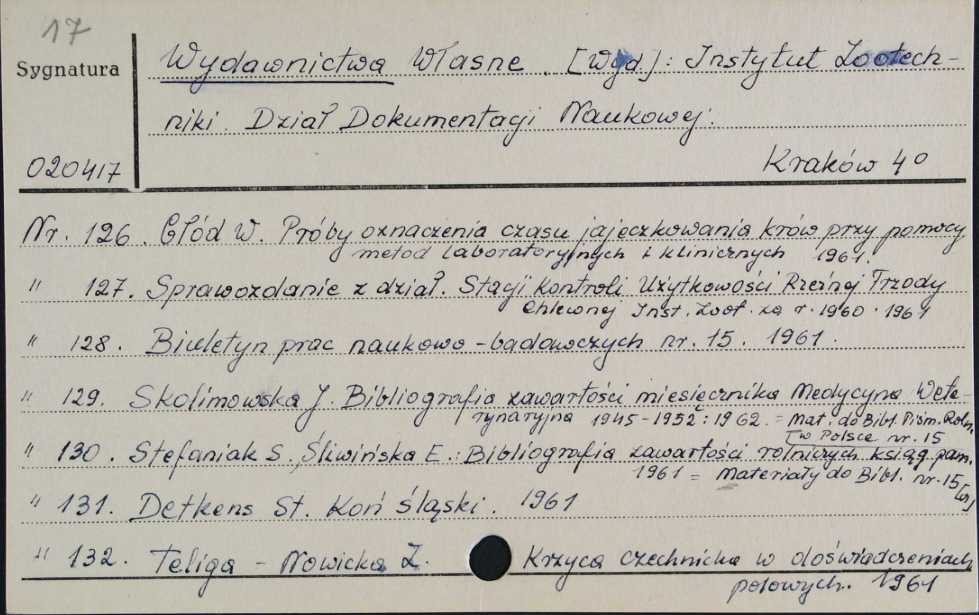 17
Sygnatura
Wydawnictwa Własne. [Wyd.]: Instytut Zootech-
niki. Dział Dokumentacji Naukowej.
020417
Kraków 4°
Nr. 126. Głód W. Próby oznaczenia czasu jajeczkowania krów przy pomocy
metod laboratoryjnych i klinicznych 1961.
" 127. Sprawozdanie z dział. Stacji Kontroli Użytkowości Rzeźnej Trzody
Chlewnej Inst. Zoot. za r. 1960. 1961
" 128. Biuletyn prac naukowo-badawczych nr. 15. 1961.
" 129. Skolimowska J. Bibliografia zawartości miesięcznika Medycyna Wete-
rynaryjna 1945-1952: 1962. = Mat. do Bibl. Piśm. Roln.
[w Polsce nr. 15
" 130. Stefaniak S., Śliwińska E.: Bibliografia zawartości rolniczych ksiąg pam.
1961 = Materiały do Bibl. nr. 15
" 131. Detkens St. Koń śląski. 1961
" 132. Teliga-Nowicka Z. Krzyca czechnicka w doświadczeniach
polowych. 1961